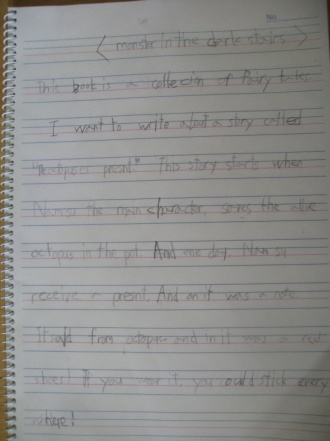 < monster in the dark stairs >
This book is a collection of Fairy tales
I want to write about a story called
present" This story starts when
Namsu the main character, saves the alive
octopus in the pot. And one day, Nam su
receive a present. And on it was a note
It said from octopus and in it was a red
shoes! If you wear it, you could stick every
where!